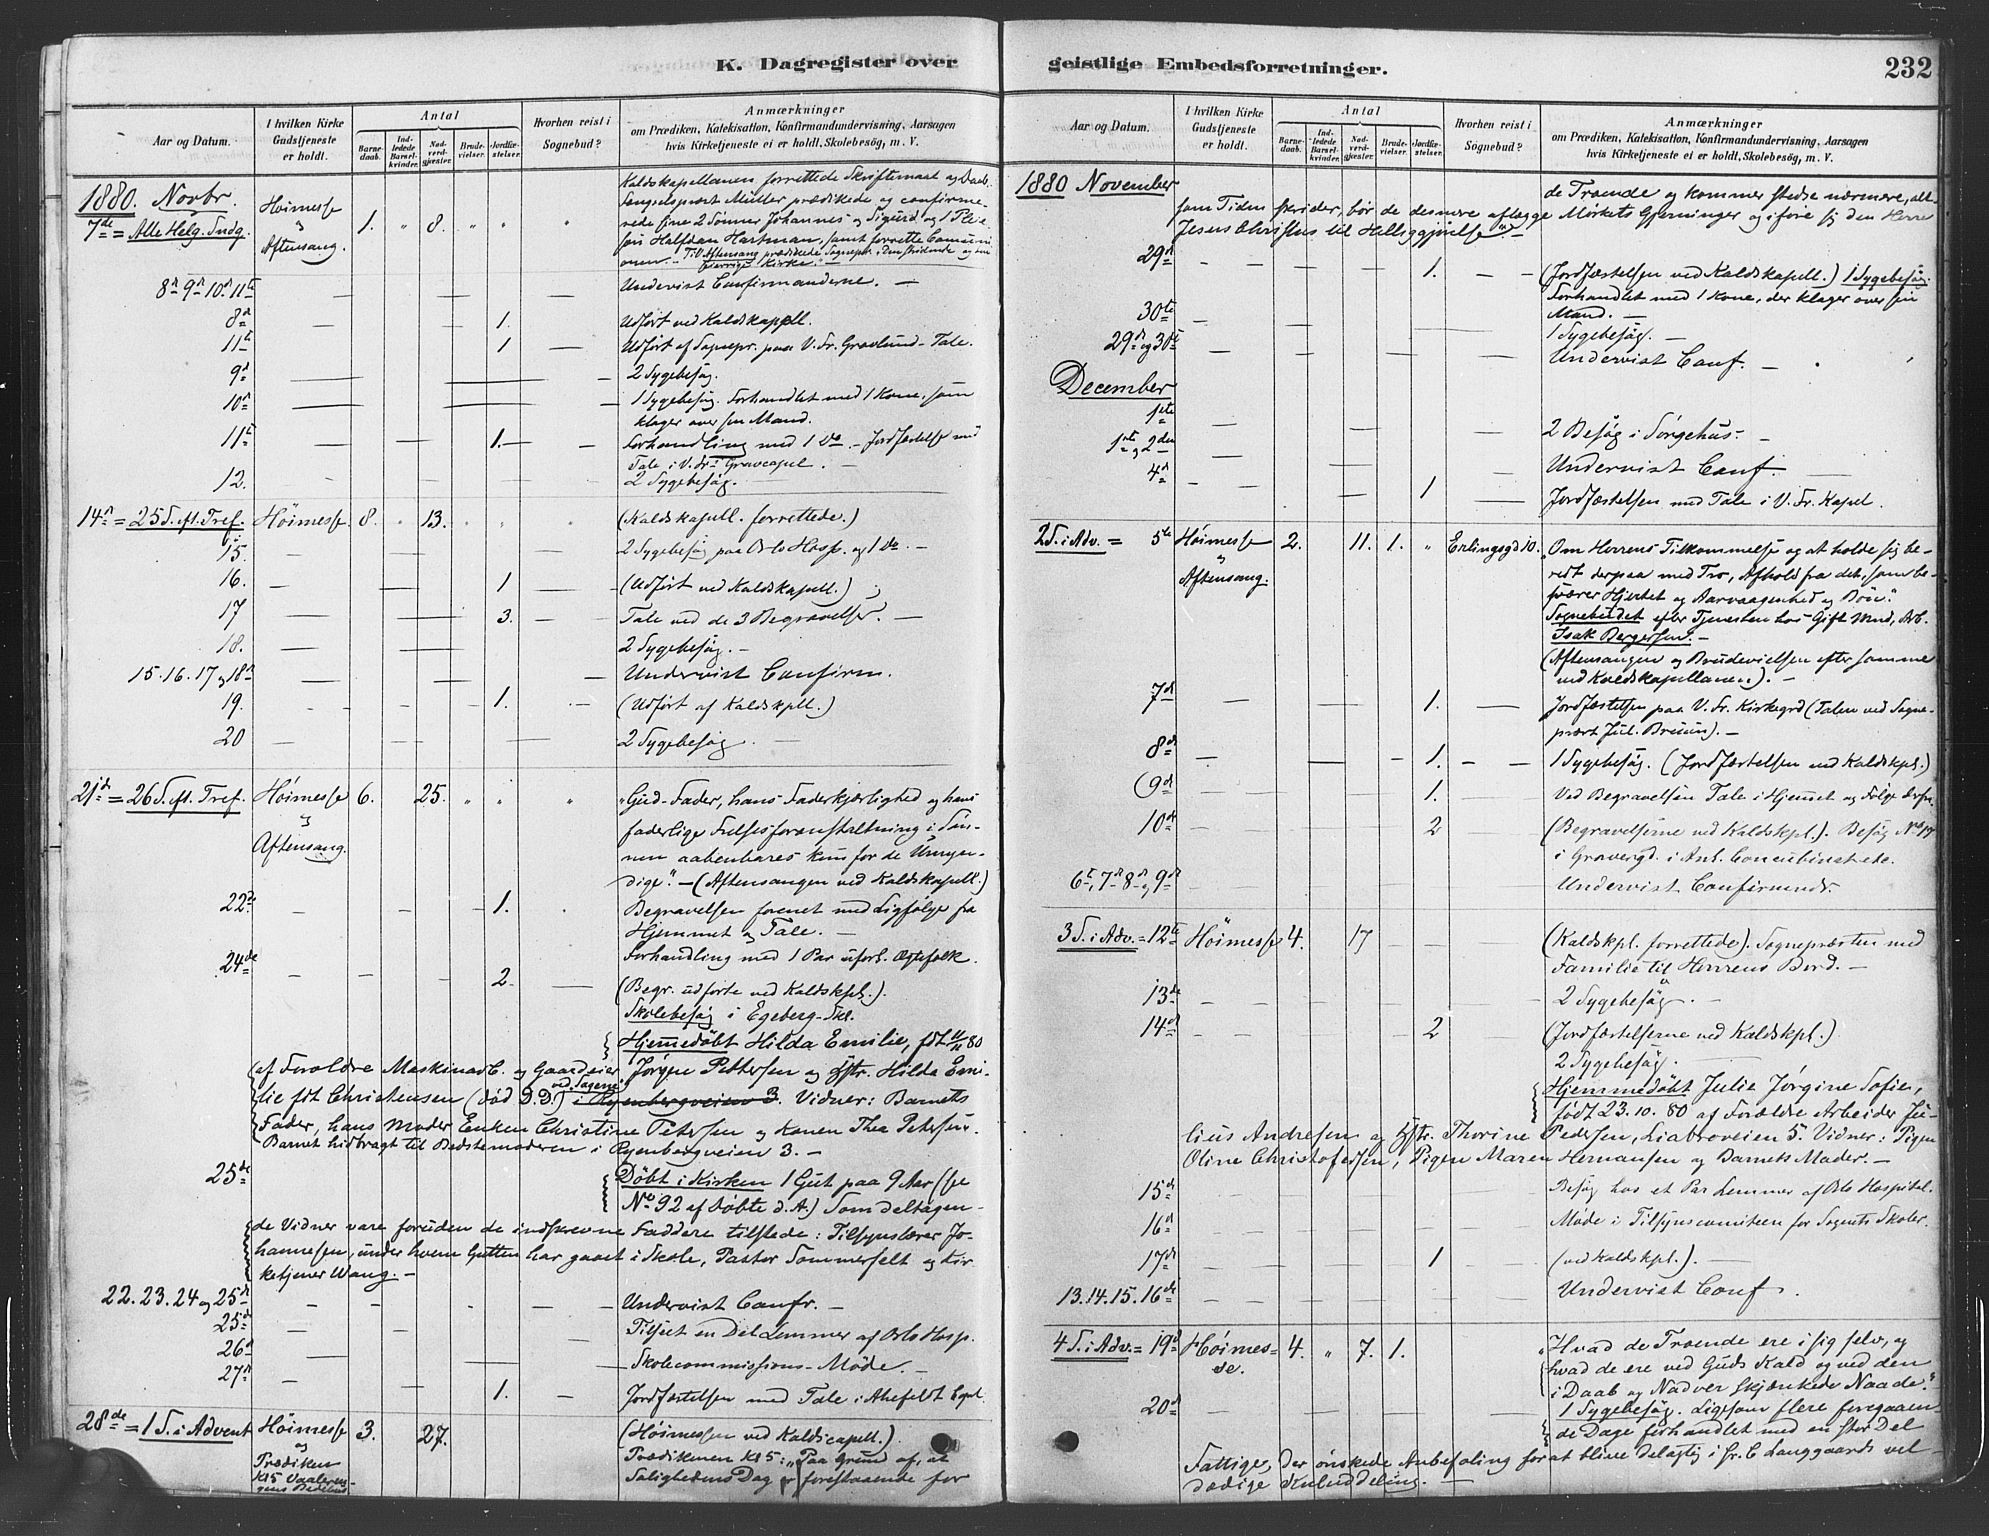 K. Dagregister over
Aar og Datum.
I hvilken Kirke Gudstjeneste er holdt.
Antal
Barnedaab.
Indledede Barselkvinder.
Nadverdgjester.
Brudevielser.
Jordfæstelser.
Hvorhen reist i Sognebud?
Anmærkninger
om Prædiken, Katekisation, Konfirmandundervisning, Aarsagen
hvis Kirketjeneste ei er holdt, Skolebesög, m. V.
1880. Novbr.
7de = Alle Helg. Sndg. Høimesse og Aftensang. 1. " 8. " " "
Kaldskapellanen forrettede Skriftemaal og Daab.
Fengselspræst Müller prædikede og confirmerede sine 2 Sønner Johannes og Sigurd, og 1 Pleiesøn Halfdan Hartman, samt forrettede Communionen. – Til Aftensang prædikede Sognepr.
8de 9de 10de 11te — — — Undervist Confirmanderne. —
8de — — 1. Udført ved Kaldskappll.
11te — — 1 — Udført af Sognepr. paa V. Fr. Gravlund – Tale.
9de — — — 2 Sygebesøg.
10de — — — 1 Sygebesøg. Forhandlet med 1 Kone, som
klager over sin Mand.
11te — — 1. — — Forhandling med 1 Do – Jordfæstelse med
Tale i V. Fr. Gravcapel. —
12. 2 Sygebesøg.
14de = 25 S. eft. Tref. Høimesse 8. " 13. " " " (Kaldskapell. forrettede.)
15. — — — 2 Sygebesøg paa Oslo Hosp. og 1 Do. —
16. — — 1 — (Udført ved Kaldskapell.)
17 — — 3. — — Tale ved de 3 Begravelser. —
18. — — 2 Sygebesøg. —
15. 16. 17 og 18de — — — Undervist Confirm.
19. — — 1. — (Udført af Kaldskpll.)
20 — — — 2 Sygebesøg. —
21de = 26 S. eft. Tref. Høimesse og Aftensang. 6. 25. " " "
"Gud-Fader, hans Faderkjærlighed og hans
faderlige Frelsesforanstaltning i Sønnen aabenbares kun for de Umyndige". – (Aftensangen ved Kaldskapell.)
22de — — 1. Begravelsen forenet med Ligfølge fra
Hjemmet og Tale. —
Forhandling med 1 Par uforl. Ægtefolk.
24de — — 2. — (Begr. udførte ved Kaldskpl.).
Skolebesøg i Egeberg-Skl.
Hjemmedøbt Hilda Emilie, født 11/11 80
(af Forældre Maskinarb. og Gaardeier Jørgen Pettersen og Hstr. Hilda Emilie født Christensen (død D.D.) i Ryenbergveien 3. Vidner: Barnets
Fader, hans Moder Enken Christine Petersen og Konen Thea Petersen.
Barnet hidbragt til Bedstemoderen i Ryenbergveien 3. —
25de Døbt i Kirken 1 Gut paa 9 Aar (se
No 92 af Døbte d. A.) Som deltagende Vidner vare foruden de indskrevne Faddere tilstede: Tilsynslærer Johannesen, under hvem Gutten har gaaet i Skole, Pastor Sommerfelt og Kirketjener Wang. —
22. 23. 24 og 25de — — — Undervist Confr. —
25de — — — Tilseet en Del Lemmer af Oslo Hosp.
26de — — — Skolecommissions-Møde. —
27de — — 1. — Jordfæstelsen med Tale i Ahefeldt Cpel.
28de = 1 S. i Advent Høimesse og Prædiken Kl 5 Vaalerengens Bedehus 3. 27.
(Høimessen ved Kaldscapell.).
Prædikenen Kl 5: "Paa Grund af, at
Salighedens Dag er forestaaende for
geistlige Embedsforretninger. 232
Aar og Datum.
I hvilken Kirke Gudstjeneste er holdt.
Antal
Barnedaab.
Indledede Barselkvinder.
Nadverdgjester.
Brudevielser.
Jordfæstelser.
Hvorhen reist i Sognebud?
Anmærkninger
om Prædiken, Katekisation, Konfirmandundervisning, Aarsagen
hvis Kirketjeneste ei er holdt, Skolebesög, m. V.
1880 November
de Troende og kommer stedse nærmere, alt
som Tiden skrider, bør de desmere aflægge Mørkets Gjerninger og iføre sig den Herre
Jesus Christus til Helliggjørelse" —
29de — — 1. — — (Jordfæstelsen ved Kaldskapell.) 1 Sygebesøg.
Forhandlet med 1 Kone, der klager over sin
Mand. —
30te — — — 1 Sygebesøg. —
29de og 30te — — — Undervist Conf. —
December
1ste — — — 2 Besøg i Sørgehus. —
1ste og 2den — — — Undervist Conf. —
4de — — 1 — Jordfæstelsen med Tale i V. Fr. Kapel.
2 S. i Adv. = 5te Høimesse og Aftensang. 2. 11. 1. " Erlingsgd 10.
"Om Herrens Tilkommelse og at holde sig beredt derpaa med Tro, Afhold fra det, som besværer Hjertet og Aarvaagenhed og Bøn."
Sognebudet efter Tjenesten hos Gift Mand, Arb.
Isak Bergersen. —
(Aftensangen og Brudevielsen efter samme
ved Kaldskapellanen). —
7de — — 1. — Jordfæstelsen paa V. Fr. Kirkegrd (Talen ved Sognepræst Jul. Bruun). —
8de — — 1. — — 1 Sygebesøg. (Jordfæstelsen ved Kaldskpl.)
(9de — — 1. — Ved Begravelsen Tale i Hjemmet og Følge derfra.
10de — — 2 — (Begravelserne ved Kaldskpl.). Besøg No 17
i Gravergd. i Anl. Concubinat etc.
6te, 7de 8de og 9de — — — Undervist Confirmndr.
3 S. i Adv. = 12te Høimesse 4. 17 — — (Kaldskpl. forrettede). Sognepræsten med
Familie til Herrens Bord. —
13de — — — 2 Sygebesøg. —
14de — — 2 — (Jordfæstelserne ved Kaldskpl.)
2 Sygebesøg. —
Hjemmedøbt Julie Jørgine Sofie,
født 23. 10. 80 af Forældre Arbeider Julius Andresen og Hstr. Thorine Pedersen, Liabroveien 5. Vidner: Pigen
Oline Christofersen, Pigen Maren Hermansen og Barnets Moder. —
15de — — — Besøg hos et Par Lemmer af Oslo Hospital.
16de — — — Møde i Tilsynscomiteen for Sognets Skoler.
17de — — 1 — (ved Kaldskpl.). —
13. 14. 15. 16de — — — Undervist Conf.
4 S. i Adv. = 19de Høimesse. 4. " 7. 1.
"Hvad de Troende ere i sig selv, og
hvad de ere ved Guds Kald og ved den
i Daab og Nadver skjænkede Naade."
20de 1 Sygebesøg. Ligesom flere foregaaende Dage forhandlet med en stor Del
Fattige, der ønskede Anbefaling for at blive delagtig i Gr. C. Langgaards veldædige Kuluddeling. —